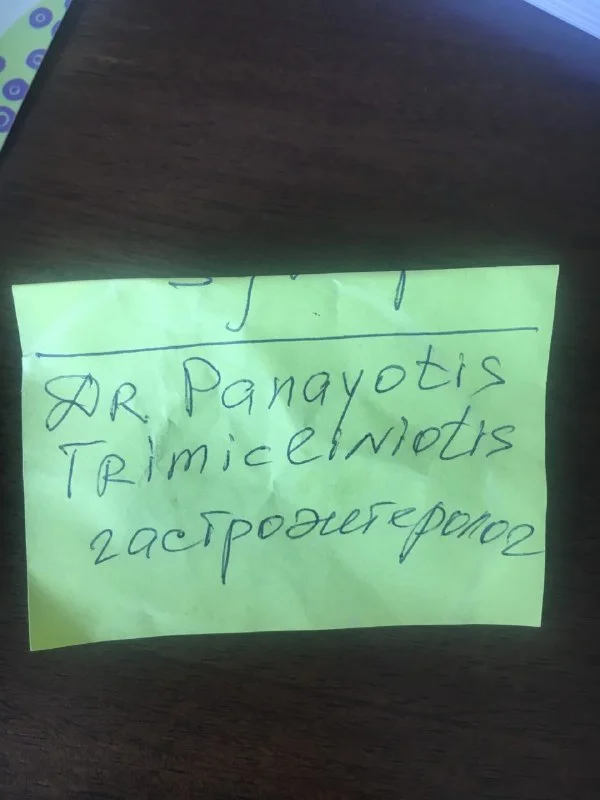 DR Panayotis
TRimicliniotis
гастроэнтеролог